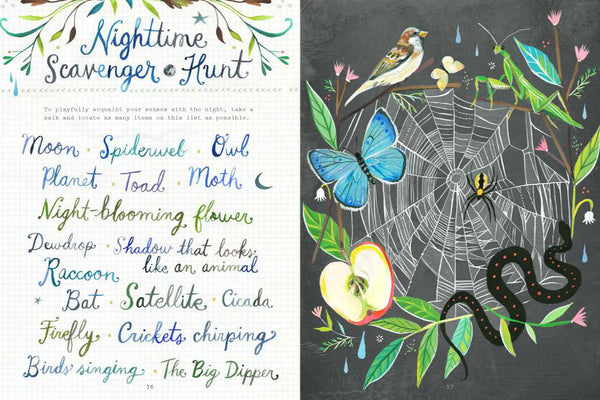 Nighttime
Scavenger Hunt
To playfully acquaint your senses with the night, take a
walk and locate as many items on this list as possible.
Moon · Spiderweb · Owl
Planet · Toad · Moth
Night-blooming flower
Dewdrop · Shadow that looks
like an animal
Raccoon
Bat · Satellite · Cicada
Firefly · Crickets chirping
Birds singing · The Big Dipper
16
17